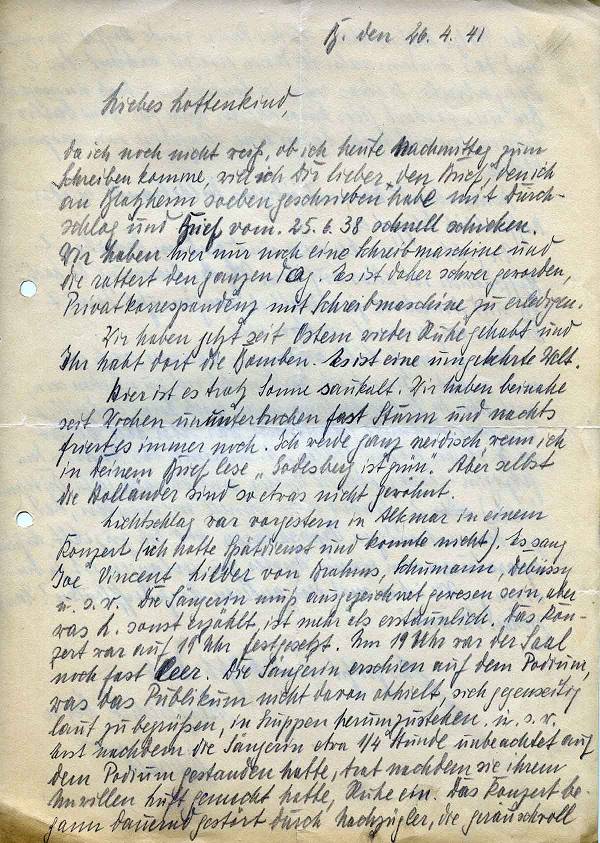 B. den 26. 4. 41
Liebes Lottenkind,
da ich noch nicht weiß, ob ich heute Nachmittag zum
Schreiben komme, will ich Dir lieber den Brief, den ich
an Blatzheim soeben geschrieben habe mit Durch-
schlag und Brief vom 25.6.38 schnell schicken.
Wir haben hier nur noch eine Schreibmaschine und
die rattert den ganzen Tag. Es ist daher schwer geworden,
Privatkorrespondenz mit Schreibmaschine zu erledigen.
Wir haben jetzt seit Ostern wieder Ruhe gehabt und
Ihr habt dort die Bomben. Es ist eine umgekehrte Welt.
Hier ist es trotz Sonne saukalt. Wir haben beinahe
seit Wochen ununterbrochen fast Sturm und nachts
friert es immer noch. Ich werde ganz neidisch, wenn ich
in Deinem Brief lese „Godesberg ist grün“. Aber selbst
die Holländer sind so etwas nicht gewöhnt.
Lichtschlag war vorgestern in Alkmar in einem
Konzert (ich hatte Spätdienst und konnte nicht). Es sang
Joe Vincent Lieder von Brahms, Schumann, Debussy
u. s. w. Die Sängerin muß ausgezeichnet gewesen sein, aber
was L. sonst erzählt, ist mehr als erstaunlich. Das Kon-
zert war auf 19 Uhr festgesetzt. Um 19 Uhr war der Saal
noch fast leer. Die Sängerin erschien auf dem Podium,
was das Publikum nicht davon abhielt, sich gegenseitig
laut zu begrüßen, in Gruppen herumzustehen u. s. w.
Erst nachdem die Sängerin etwa 1/4 Stunde unbeachtet auf
dem Podium gestanden hatte, trat nachdem sie ihrem
Unwillen Luft gemacht hatte, Ruhe ein. Das Konzert be-
gann dauernd gestört durch Nachzügler, die geräuschvoll